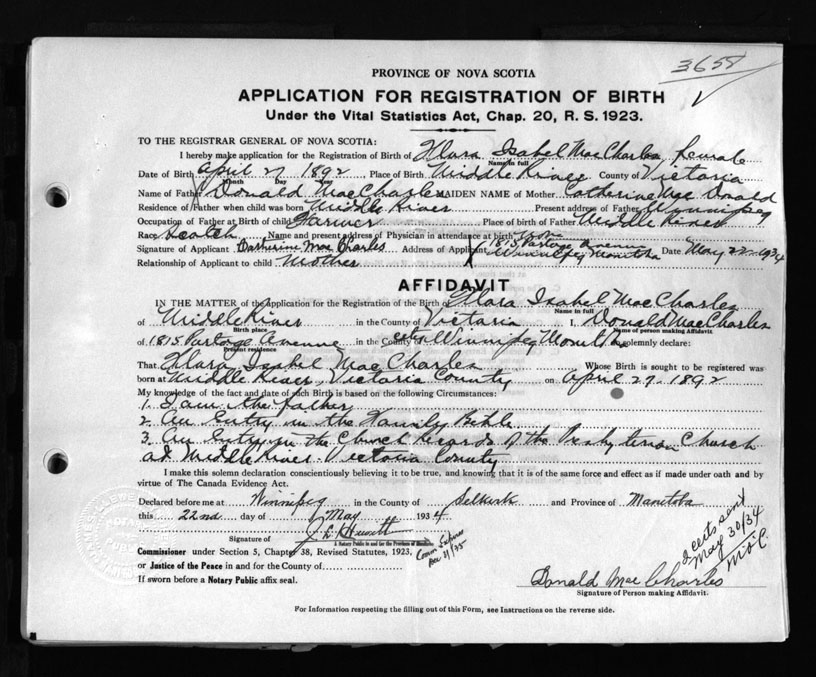 3658
PROVINCE OF NOVA SCOTIA
APPLICATION FOR REGISTRATION OF BIRTH
Under the Vital Statistics Act, Chap. 20, R. S. 1923.
TO THE REGISTRAR GENERAL OF NOVA SCOTIA:
I hereby make application for the Registration of Birth of Flora Isabel MacCharles, female
Name in full
Date of Birth April 27 1892 Place of Birth Middle River County of Victoria
Month Day
Name of Father Donald MacCharles MAIDEN NAME of Mother Catherine Mac Donald
Residence of Father when child was born Middle River Present address of Father Winnipeg
Occupation of Father at Birth of child Farmer Place of birth of Father Middle River
Race Scotch Name and present address of Physician in attendance at birth
Signature of Applicant Catherine Mac Charles Address of Applicant 1815 Portage Avenue Winnipeg Manitoba Date May 22 1934
Relationship of Applicant to child Mother
AFFIDAVIT
IN THE MATTER of the Application for the Registration of the Birth of Flora Isabel MacCharles
Name in full
of Middle River in the County of Victoria I, Donald MacCharles
Birth place Name of person making Affidavit
of 1815 Portage Avenue in the County of Winnipeg solemnly declare:
Present residence
That Flora Isabel Mac Charles Whose Birth is sought to be registered was
born at Middle River, Victoria County on April 27 1892
My knowledge of the fact and date of such Birth is based on the following Circumstances:
1. I am the father
2. An Entry in the Family Bible
3. An Entry in the Church Records of the Presbyterian Church
at Middle River. Victoria County
I make this solemn declaration conscientiously believing it to be true, and knowing that it is of the same force and effect as if made under oath and by
virtue of The Canada Evidence Act.
Declared before me at Winnipeg in the County of Selkirk and Province of Manitoba
this 22nd day of May 1934
Signature of
A Notary Public in and for the Province of Manitoba
Commissioner under Section 5, Chapter 38, Revised Statutes, 1923,
or Justice of the Peace in and for County of
If sworn before a Notary Public affix seal.
Comm Expires
Dec 31/35
2 certs sent
May 30/34
Donald Mac Charles
Signature of Person making Affidavit.
For Information respecting the filling out of this Form, see Instructions on the reverse side.